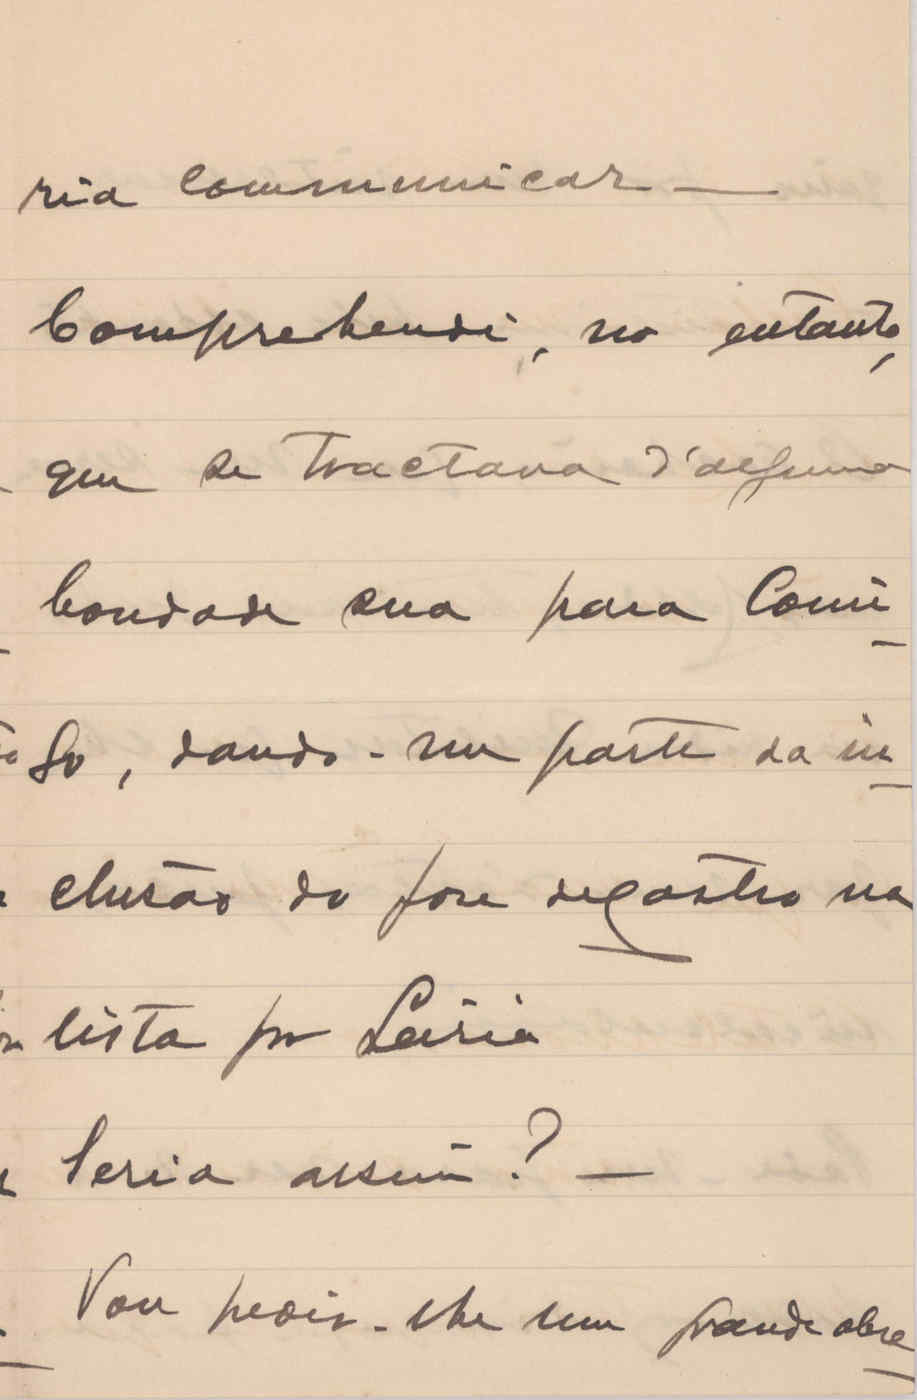 ria communicar —
Comprehendi, no entanto,
que se tractava d'alguma
bondade sua para comi-
go, dando-me parte da in-
clusão do José de Castro na
lista por Leiria
Seria assim? —
Vou pedir-lhe um grande obse-